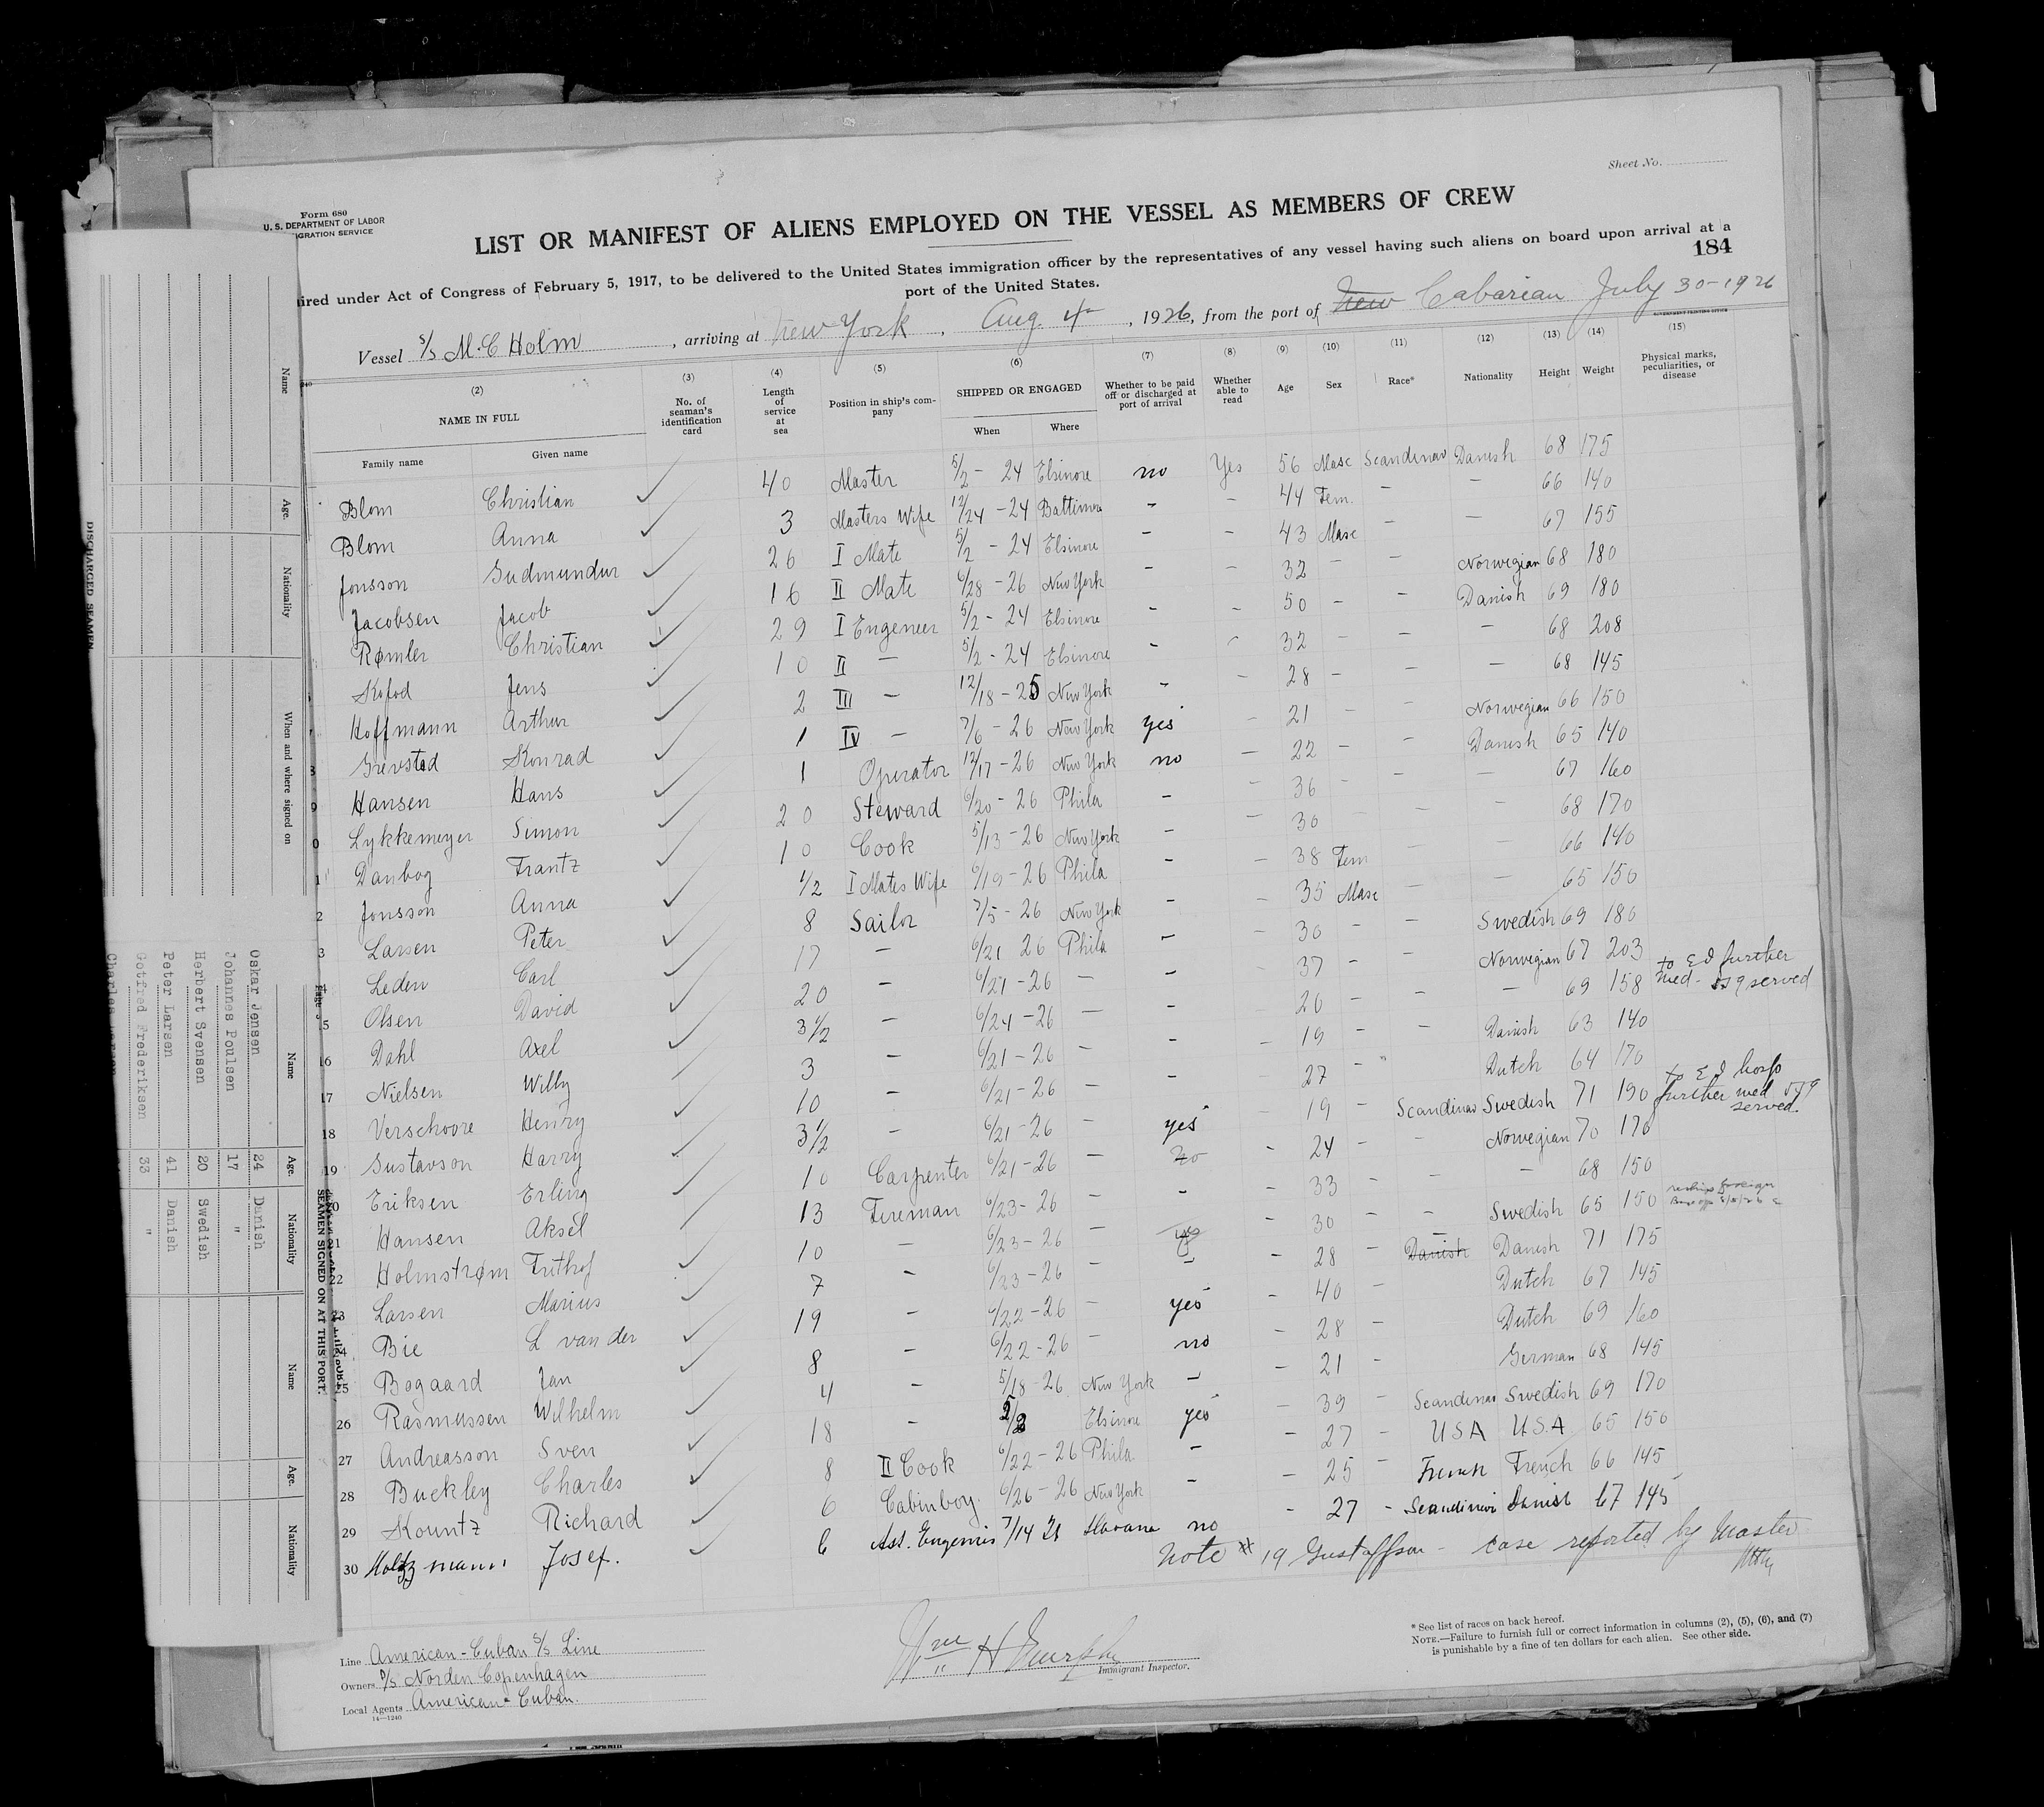 Sheet No.
Form 680
U. S. DEPARTMENT OF LABOR
IGRATION SERVICE
LIST OR MANIFEST OF ALIENS EMPLOYED ON THE VESSEL AS MEMBERS OF CREW
184
ired under Act of Congress of February 5, 1917, to be delivered to the United States immigration officer by the representatives of any vessel having such aliens on board upon arrival at a
port of the United States.
Vessel S/S M.C Holm, arriving at New York, Aug 4, 1926, from the port of New July 30-1926
(2) (3) (4) (5) (6) (7) (8) (9) (10) (11) (12) (13) (14) (15)
NAME IN FULL No. of seaman's identification card Length of service at sea Position in ship's company SHIPPED OR ENGAGED Whether to be paid off or discharged at port of arrival Whether able to read Age Sex Race* Nationality Height Weight Physical marks, peculiarities, or disease
Family name Given name When Where
Blom Christian 40 Master 5/2 - 24 Elsinore no Yes 56 Masc Scandinav Danish 68 175
Blom Anna 3 Masters Wife 12/24 - 24 Baltimore - - 44 Fem. - - 66 140
Jonsson Gudmundur 26 I Mate 5/2 - 24 Elsinore - - 43 Masc - - 67 155
Jacobsen Jacob 16 II Mate 6/28 - 26 New York - - 32 - - Norwegian 68 180
Rømler Christian 29 I Engeneer 5/2 - 24 Elsinore - - 50 - - Danish 69 180
Kofod Jens 10 II - 5/2 - 24 Elsinore - - 32 - - - 68 208
Hoffmann Arthur 2 III - 12/18 - 25 New York - - 28 - - - 68 145
Grevsted Konrad 1 IV - 7/6 - 26 New York yes - 21 - - Norwegian 66 150
Hansen Hans 1 Operator 12/17 - 26 New York no - 22 - - Danish 65 140
Lykkemeyer Simon 20 Steward 6/20 - 26 Phila - - 36 - - - 67 160
Danbog Frantz 10 Cook 5/13 - 26 New York - - 30 - - 68 170
Jonsson Anna 1/2 I Mates Wife 6/19 - 26 Phila - - 38 Fem - - 66 140
Larsen Peter 8 Sailor 7/5 - 26 New York - - 35 Masc - - 65 150
Leden Carl 17 - 6/21 26 Phila - - 30 - - Swedish 69 180
Olsen David 20 - 6/21 - 26 - - - 37 - - Norwegian 67 203 to E I further
Dahl Axel 3 1/2 - 6/24 - 26 - - 20 - - - 69 158 med - served
Nielsen Willy 3 - 6/21 - 26 - - - 19 - - Danish 63 140
Verschoore Henry 10 - 6/21 - 26 - - 27 - Dutch 64 170 to E I hosp
Gustavson Harry 3 1/2 - 6/21 - 26 - yes - 19 - Scandinav Swedish 71 190 further med served.
Eriksen Erling 10 Carpenter 6/21 - 26 - no - 24 - - Norwegian 70 170
Hansen Aksel 13 Fireman 6/23 - 26 - - - 33 - - - 68 150
Holmstrøm Frithof 10 - 6/23 - 26 - yes - 30 - - Swedish 65 150
Larsen Marius 7 - 6/23 - 26 - - 28 - Danish Danish 71 175
Bie L van der 19 - 6/22 - 26 - yes - 40 - Dutch 67 145
Bogaard Jan 8 - 6/22 - 26 - no 28 - Dutch 69 160
26 Rasmussen Wilhelm 4 - 5/18 - 26 New York - - 21 - German 68 145
27 Andreasson Sven 18 - Elsinore yes - 39 - Scandinav Swedish 69 170
28 Buckley Charles 8 II Cook 6/22 - 26 Phila - - 27 - USA U.S.A. 65 150
29 Kountz Richard 6 Cabinboy. 6/26 - 26 New York - - 25 - French French 66 145
30 Holtzmann Josef. 6 Ass. Engenir 7/14 26 Havana no - 27 - Scandinavi Danish 67 145
Note # 19 Gustaffson - Case reported by Master
Line American-Cuban S/S Line
Owners D/S Norden Copenhagen
Local Agents American-Cuban.
14—1240
Wm H Murphy
Immigrant Inspector.
* See list of races on back hereof.
NOTE.—Failure to furnish full or correct information in columns (2), (5), (6), and (7)
is punishable by a fine of ten dollars for each alien. See other side.
DISCHARGED SEAMEN
Name Age. Nationality When and where signed on
SEAMEN SIGNED ON AT THIS PORT.
Name Age. Nationality Name Age. Nationality
Oskar Jensen 24 Danish
Johannes Poulsen 17 "
Herbert Svensen 20 Swedish
Peter Larsen 41 Danish
Gotfred Frederiksen 33 "